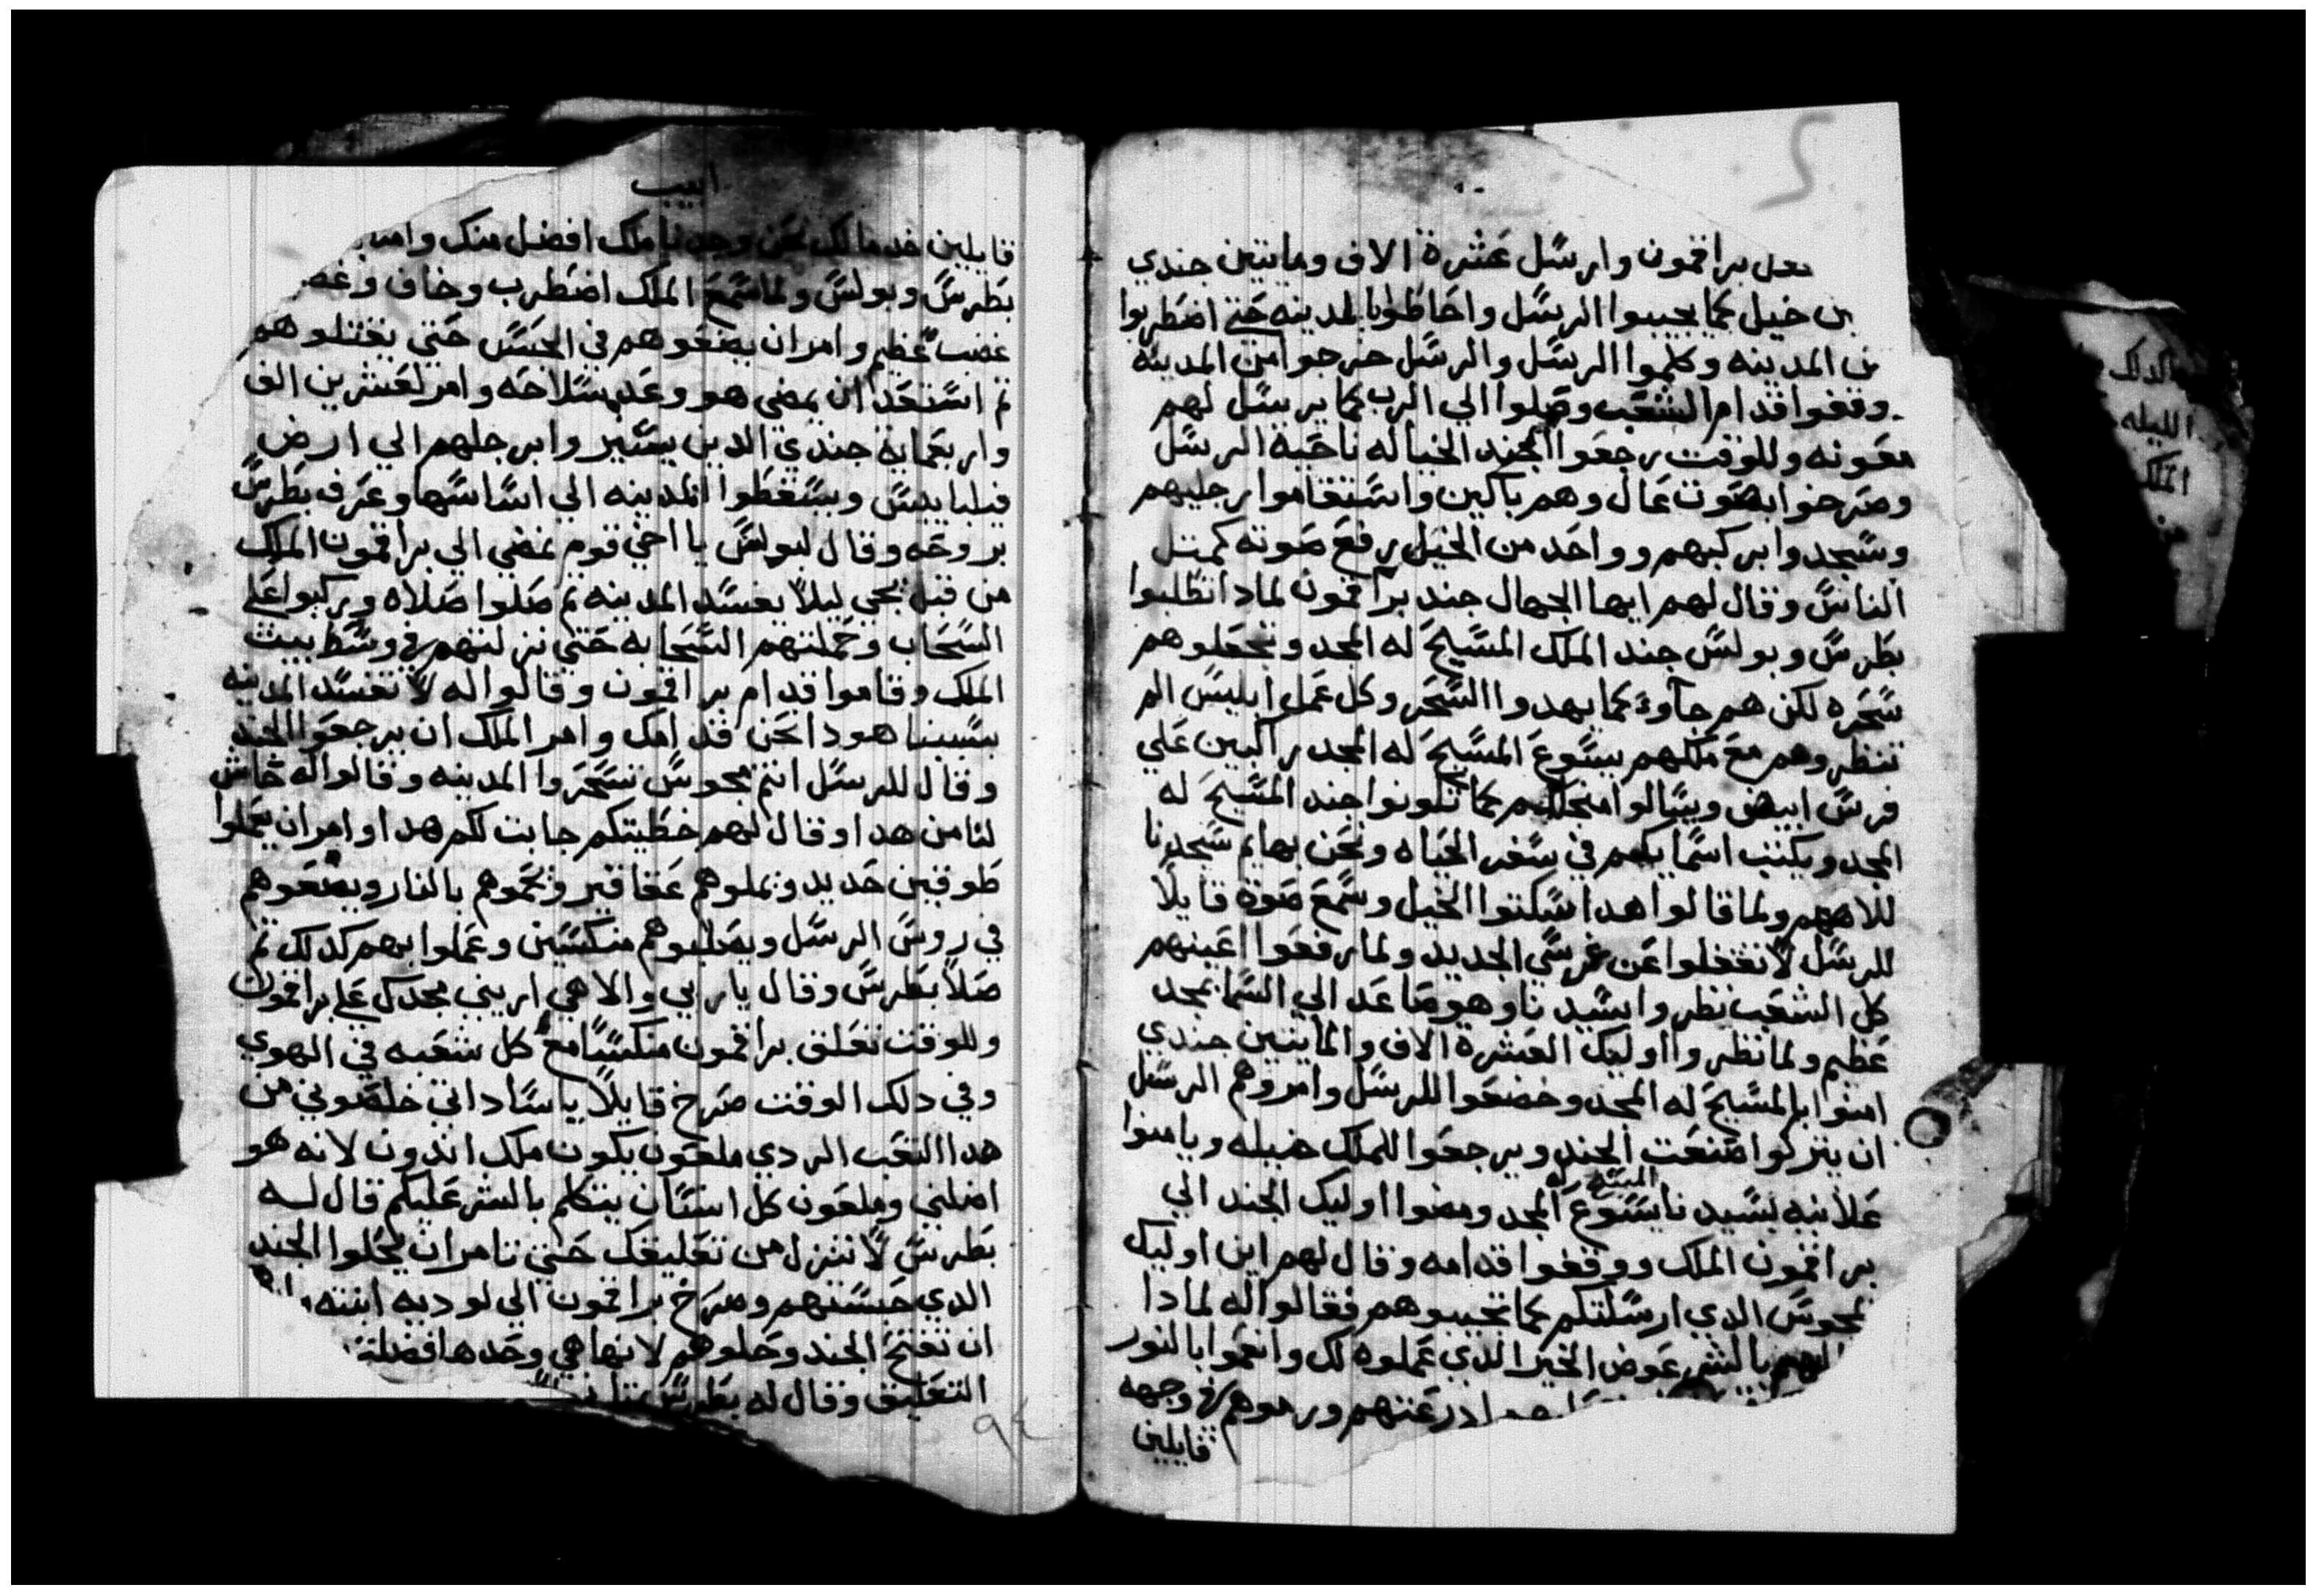 براقمون وارسل عشرة الاف ومايتين جندي
خيل كما يجيبوا الرسل واحاطوا بالمدينه حتي اضطربوا
المدينه وكلموا الرسل والرسل خرجوا من المدينه
وقفوا قدام الشعب وصلوا الي الرب كما يرسل لهم
معونه وللوقت رجعوا الجند الخياله ناحية الرسل
وصرخوا بصوت عال وهم باكين واستقاموا رجليهم
وسجدوا بركبهم وواحد من الخيل رفع صوته كمتل
الناس وقال لهم ايها الجهال جند براقمون لمادا تطلبوا
بطرس وبولس جند الملك المسيح له المجد وتجعلوهم
سحره لكن هم جاوا كما يهدوا السحر وكل عمل ابليس الم
تنظروهم مع ملكهم يسوع المسيح له المجد راكبين علي
فرس ابيض ويسالوا من اجلكم كما تكونوا جند المسيح له
المجد ويكتب اسمايكم في سفر الحياه ونحن بهايم سجدنا
للاههم ولما قالوا هدا سكتوا الخيل وسمع صوة قايلا
للرسل لا تغفلوا عن غرسي الجديد ولما رفعوا اعينهم
كل الشعب نظروا سيدنا وهو صاعد الي السما بمجد
عظيم ولما نظروا اوليك العشرة الاف والمايتين جندي
امنوا بالمسيح له المجد وخضعوا للرسل وامروهم الرسل
ان يتركوا صنعت الجند ويرجعوا للملك خيله ويامنوا
علانيه بسيدنا يسوع المسيح له المجد ومضوا اوليك الجند الي
براقمون الملك ووقفوا قدامه وقال لهم اين اوليك
المجوس الدي ارسلتكم كما تجيبوهم فقالوا له لمادا
بالشر عوض الخير الدي عملوه لك وانعموا بالنور
ادرعتهم ورموهم في وجهه
قايلين
ابيب
قايلين خد مالك نحن وجدنا ملك افضل منك
بطرس وبولس ولما سمع الملك اضطرب وخاف وغضب
غضب عظيم وامر ان يضعوهم في الحبس حتي يقتلوهم
تم استعد ان يمضي هو وعدد سلاحه وامر لعشرين الف
واربعماية جندي الدين يسير وابرجلهم الي ارض
فيلبايس ويسقطوا المدينه الي اساسها وعرف بطرس
بروحه وقال لبولس يا اخي قوم نمضي الي براقمون الملك
من قبل يجي ليلا يفسد المدينه تم صلوا صلاه وركبوا علي
السحاب وحملتهم السحابه حتي نزلتهم في وسط بيت
الملك وقاموا قدام براقمون وقالوا له لا تفسد المدينه
بسببنا هودا نحن قدامك وامر الملك ان يرجعوا الجند
وقال للرسل انتم مجوس تسحروا المدينه وقالوا له حاش
لنا من هدا وقال لهم خطيتكم جابت لكم هدا وامر ان يعملوا
طوقين حديد ويملوهم عقاقير ويحموهم بالنار ويضعوهم
في روس الرسل ويصلبوهم منكسين وعملوا بهم كدلك تم
صلا بطرس وقال يا ربي والاهي اريني مجدك علي براقمون
وللوقت تعلق براقمون منكسا مع كل شعبه في الهوي
وفي دلك الوقت صرخ قايلا يا ساداتي خلصوني من
هدا التعب الردي ملعون يكون ملك اندون لانه هو
اضلني وملعون كل انسان يتكلم بالشر عليكم قال له
بطرس لا تنزل من تعليقك حتي تامر ان يحلوا الجند
الدي حبستهم وصرخ براقمون الي لوديه ابنته
ان تفتح الجند وحلوهم لانها هي وحدها افضلت
التعليق وقال له بطرس